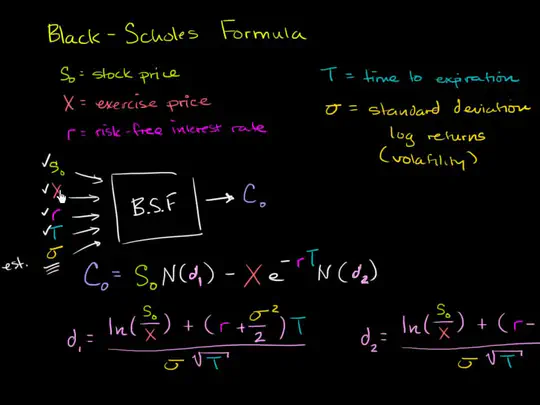 Black-Scholes Formula
S₀ = stock price
X = exercise price
r = risk-free interest rate
T = time to expiration
σ = standard deviation
log returns
(volatility)
✓ S₀
✓ X
✓ r
✓ T
σ
est.
B.S.F
C₀
C₀ = S₀ N(d₁) - X e^-rT N(d₂)
d₁ = (ln(S₀/X) + (r + σ²/2) T) / (σ √T)
d₂ = (ln(S₀/X) + (r - / (σ √T)